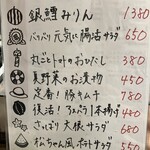 銀鱈みりん 1380
バリバリ元気に腸活サラダ 650
丸ごとトマトのおひたし 380
夏野菜のお漬物 450
定番！豚キムチ 780
復活！ちょいパリ1本揚げ 480
さっぱり大根サラダ 680
松ちゃん風ポテトサラダ 550